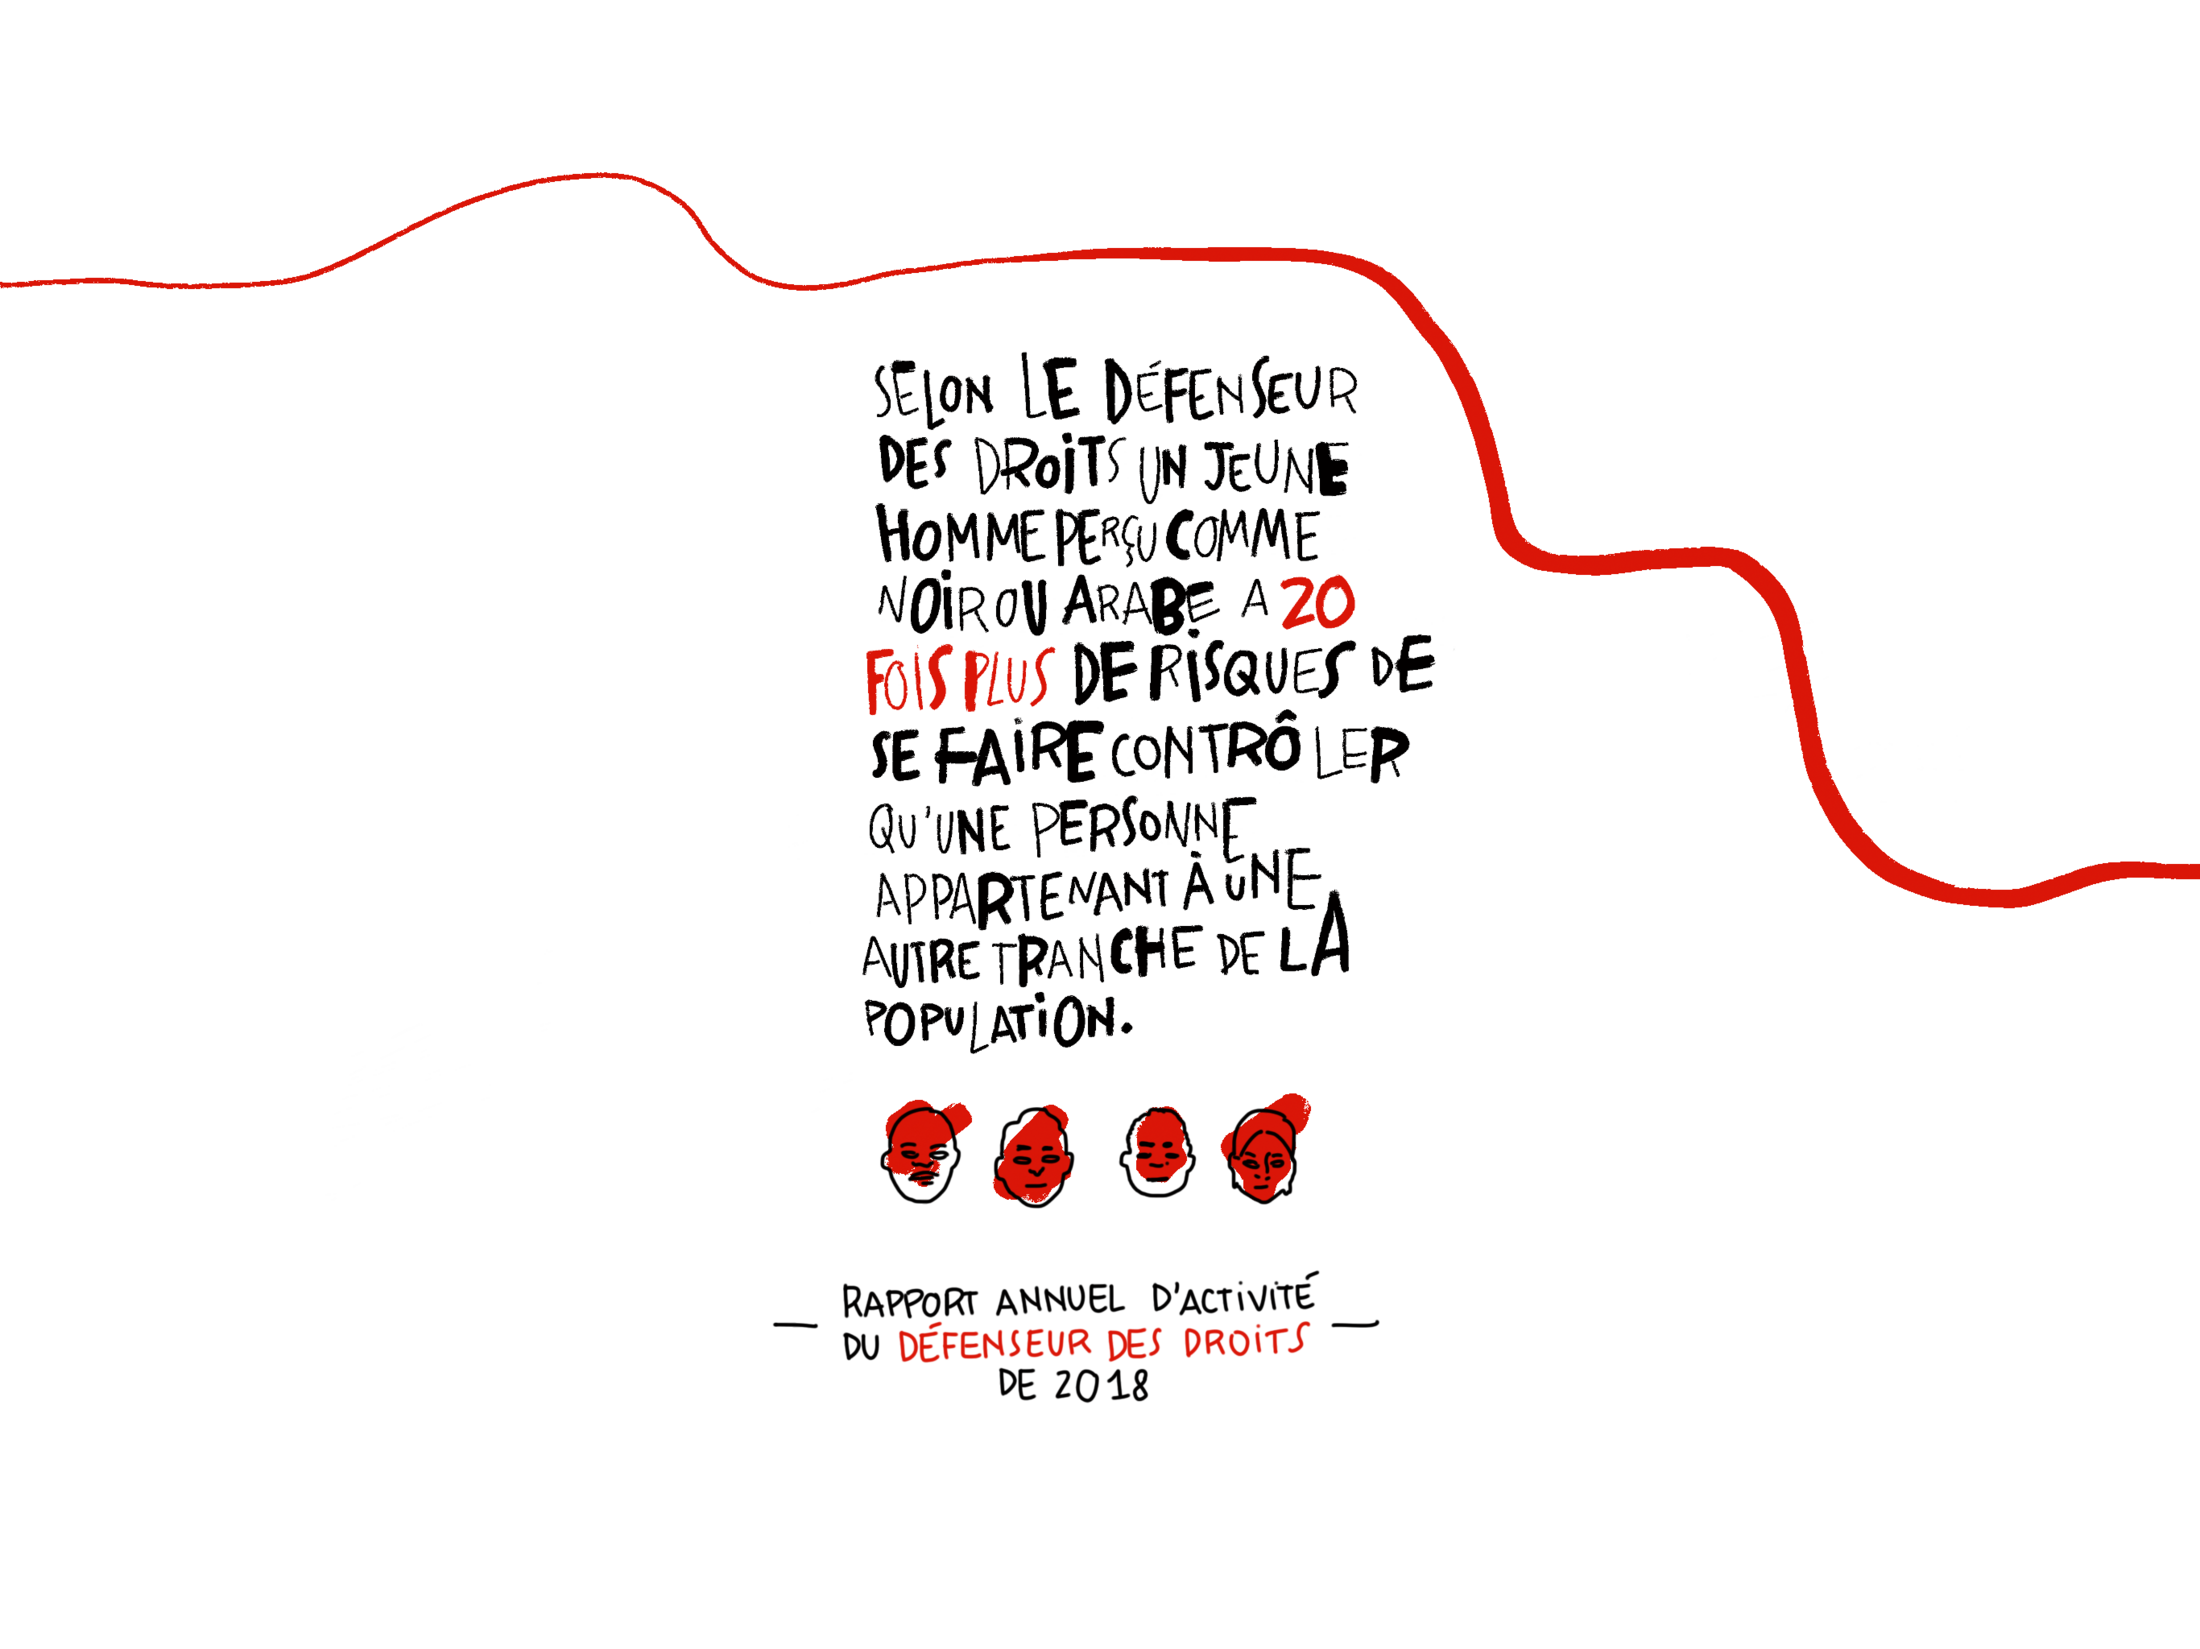 SELON LE DÉFENSEUR
DES DROITS UN JEUNE
HOMME PERÇU COMME
NOIR OU ARABE A 20
FOIS PLUS DE RISQUES DE
SE FAIRE CONTRÔLER
QU'UNE PERSONNE
APPARTENANT À UNE
AUTRE TRANCHE DE LA
POPULATION.
RAPPORT ANNUEL D'ACTIVITÉ
DU DÉFENSEUR DES DROITS
DE 2018